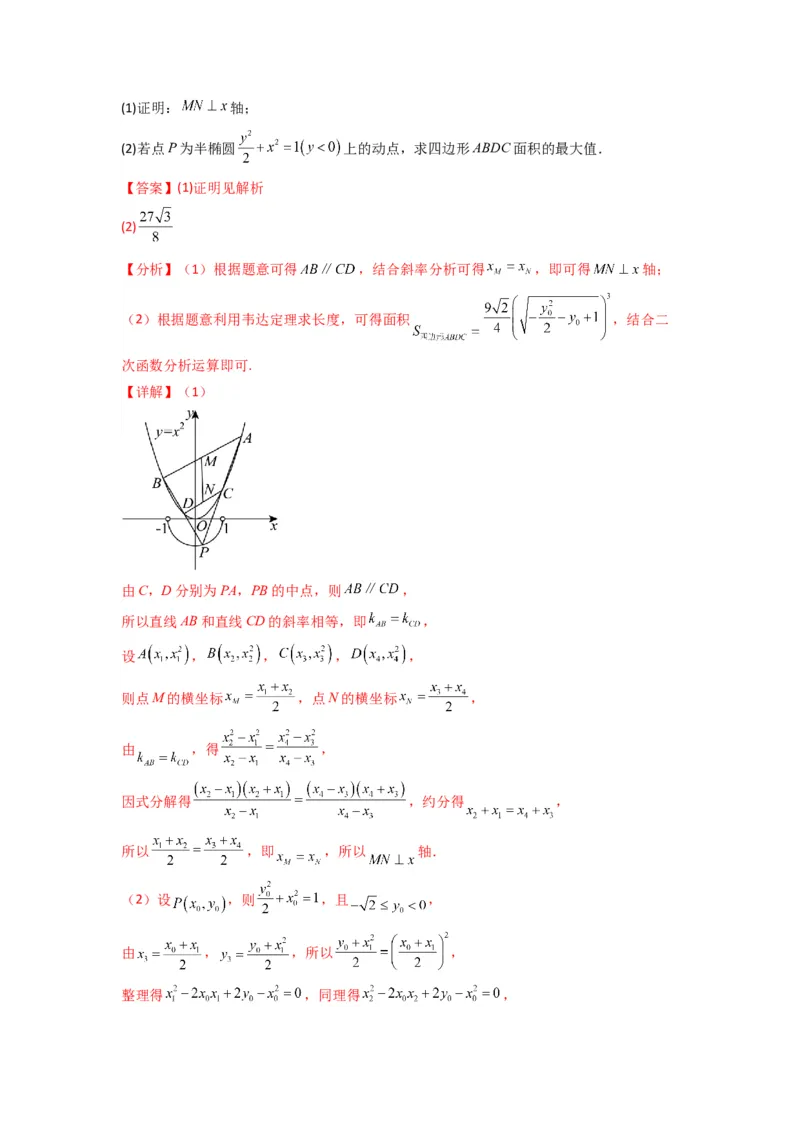 (1)证明：MN ⊥ x轴；
(2)若点P为半椭圆 y²/2 + x² = 1(y<0)上的动点，求四边形ABDC面积的最大值．
【答案】(1)证明见解析
(2) 27 3/8
【分析】（1）根据题意可得AB // CD，结合斜率分析可得x_M = x_N，即可得MN ⊥ x轴；
（2）根据题意利用韦达定理求长度，可得面积S_{四边形ABDC} = 9 2/4 (√(−y₀²/2 − y₀ + 1))³，结合二
次函数分析运算即可.
【详解】（1）
y
y=x²
A
M
B
N
C
D
-1
O
1
x
P
由C，D分别为PA，PB的中点，则AB // CD，
所以直线AB和直线CD的斜率相等，即k_AB = k_CD，
设A(x₁,x₁²)，B(x₂,x₂²)，C(x₃,x₃²)，D(x₄,x₄²)，
则点M的横坐标x_M = (x₁ + x₂)/2，点N的横坐标x_N = (x₃ + x₄)/2，
由k_AB = k_CD，得(x₂² − x₁²)/(x₂ − x₁) = (x₄² − x₃²)/(x₄ − x₃)，
因式分解得(x₂ − x₁)(x₂ + x₁)/(x₂ − x₁) = (x₄ − x₃)(x₄ + x₃)/(x₄ − x₃)，约分得x₂ + x₁ = x₄ + x₃，
所以(x₁ + x₂)/2 = (x₃ + x₄)/2，即x_M = x_N，所以MN ⊥ x轴．
（2）设P(x₀,y₀)，则y₀²/2 + x₀² = 1，且− 2 ≤ y₀ < 0，
由x₃ = (x₀ + x₁)/2，y₃ = (y₀ + x₁²)/2，所以(y₀ + x₁²)/2 = ((x₀ + x₁)/2)²，
整理得x₁² − 2x₀x₁ + 2y₀ − x₀² = 0，同理得x₂² − 2x₀x₂ + 2y₀ − x₀² = 0，